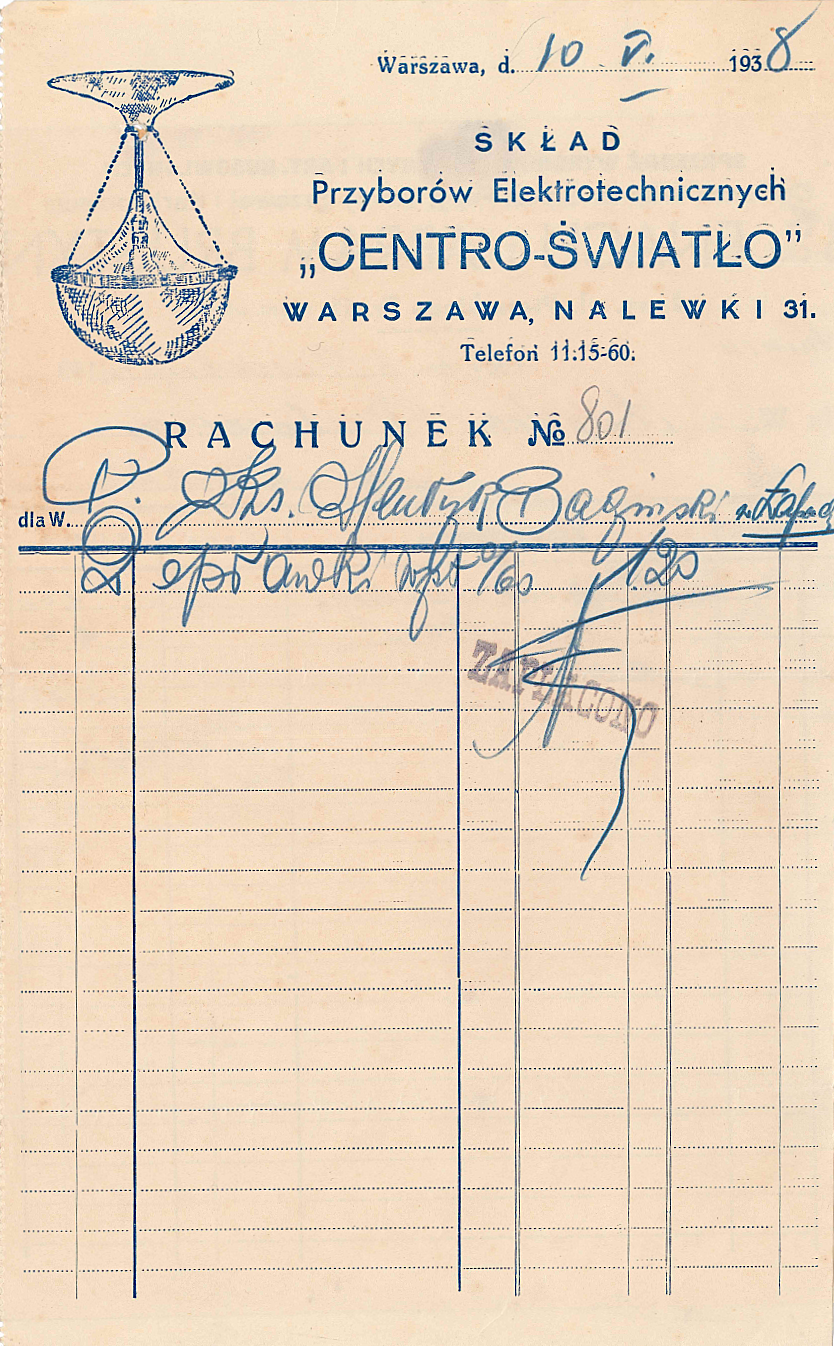 Warszawa, d. 10 V. 1938
SKŁAD
Przyborów Elektrotechnicznych
„CENTRO-ŚWIATŁO”
WARSZAWA, NALEWKI 31.
Telefon 11:15-60.
RACHUNEK № 801
dla W. P. Inż. Henryk Bagiński
2 1.20
ZAPŁACONO